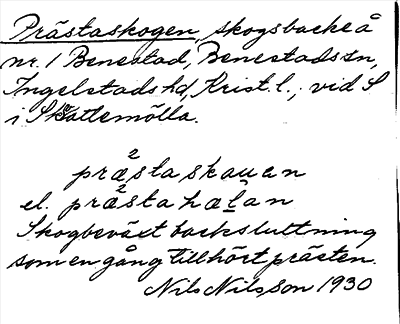 Prästaskogen, skogsbacke å
nr. 1 Benestad, Benestads sn,
Ingelstads hd, Krist. l., vid S
i Skattemölla.
præ²staskauan
el. præ²stahæḷan
Skogbeväxt backsluttning
som en gång tillhört prästen.
Nils Nilsson 1930